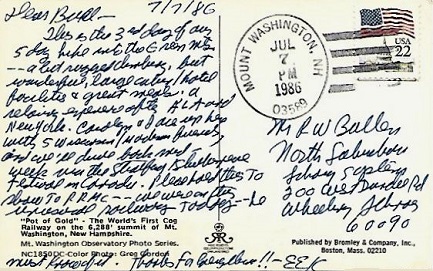 Dear Bull— 7/7/86
This is the 3rd day of our
5 day hike in the Green Mts
—and rugged climbing, but
wonderful, large eating / hotel
facilities & great meals. a
relaxing experience after ALA and
New York. Carolyn & I are up here
with 5 Wisconsin / friends
and we'll drive back next
week via the Stratford Shakespeare
Festival in Canada. Please hold this to
show to RRMC— we were on this
railway today—he
most . Thanks for everything!! —SEK
MOUNT WASHINGTON, NH
JUL
7
PM
1986
03589
USA
22
Mr R W Bullen
North Suburban
Library System
200 West Dundee Rd
Wheeling Illinois
60090
"Pot of Gold" - The World's First Cog
Railway on the 6,288' summit of Mt.
Washington, New Hampshire.
Mt. Washington Observatory Photo Series.
NC1850DC-Color Photo: Greg Gordon
Published by Bromley & Company, Inc.,
Boston, Mass. 02210